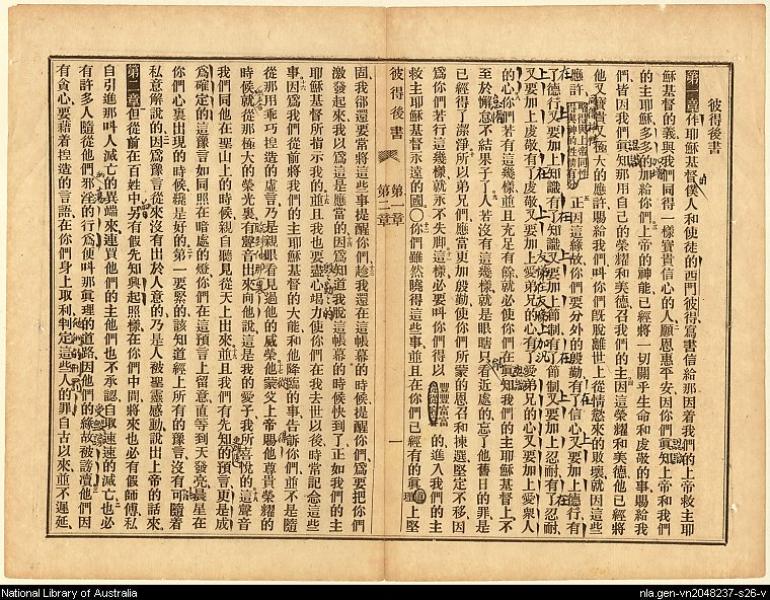 彼得後書
第一章 作耶穌基督僕人和使徒的西門彼得寫書信給那因着我們的上帝救主耶
穌基督的義與我們同得一樣寶貴信心的人願恩惠平安因你們真知上帝和我們
的主耶穌多多的加給你們上帝的神能已經將一切關乎生命和虔敬的事賜給我
們皆因我們真知那用自己的榮耀和美德召我們的主因這榮耀和美德他已經將
他又寶貴又極大的應許賜給我們叫你們既脫離世上從情慾來的敗壞就因這些
應許 正因這緣故你們要分外的殷勤有了信心又要加上德行有
了德行又要加上知識有了知識又要加上節制有了節制又要加上忍耐有了忍耐
又要加上虔敬有了虔敬又要加上愛弟兄的心有了愛弟兄的心又要加上愛衆人
的心你們若有這幾樣並且充足有餘就必使你們在真知我們的主耶穌基督上不
至於懶惰不結果子了人若沒有這幾樣就是眼瞎只看近處的忘了他舊日的罪是
已經得了潔淨所以弟兄們應當更加殷勤使你們所蒙的恩召和揀選堅定不移因
爲你們若行這幾樣就永不失脚這樣必要叫你們得以 豐豐富富 的進入我們的主
救主耶穌基督永遠的國〇你們雖然曉得這些事並且在你們已經有的真理上堅
彼得後書 第一章 第二章 一
固我卻還要常將這些事提醒你們趁我還在這帳幕的時候提醒你們爲要把你們
激發起來我以爲這是應當的因爲知道我脫這帳幕的時候快到了正如我們的主
耶穌基督所指示我的並且我也要盡心竭力使你們在我去世以後時常記念這些
事因爲我們從前將我們的主耶穌基督的大能和他降臨的事告訴你們並不是隨
從那用乖巧揑造的虛言乃是親眼看見過他的威榮他蒙父上帝賜他尊貴榮耀的
時候就從那極大的榮光裏有聲音出來向他說這是我的愛子我所喜悅的這聲音
我們同他在聖山上的時候親自聽見從天上出來並且我們有先知的預言更是成
爲確定的這豫言如同照在暗處的燈你們在這預言上留意直等到天發亮晨星在
你們心裏出現的時候纔是好的第一要緊的該知道經上所有的豫言沒有可隨着
私意解說的因爲豫言從來沒有出於人意的乃是人被聖靈感動說出上帝的話來
第二章 但從前在百姓中另有假先知興起照樣在你們中間將來也必有假師傅私
自引進那叫人滅亡的異端來連買他們的主他們也不承認自取速速的滅亡也必
有許多人隨從他們邪淫的行爲便叫那真理的道路因他們的緣故被謗瀆他們因
有貪心要藉着揑造的言語在你們身上取利判定這些人的罪自古以來並不遲延
National Library of Australia
nla.gen-vn2048237-s26-v